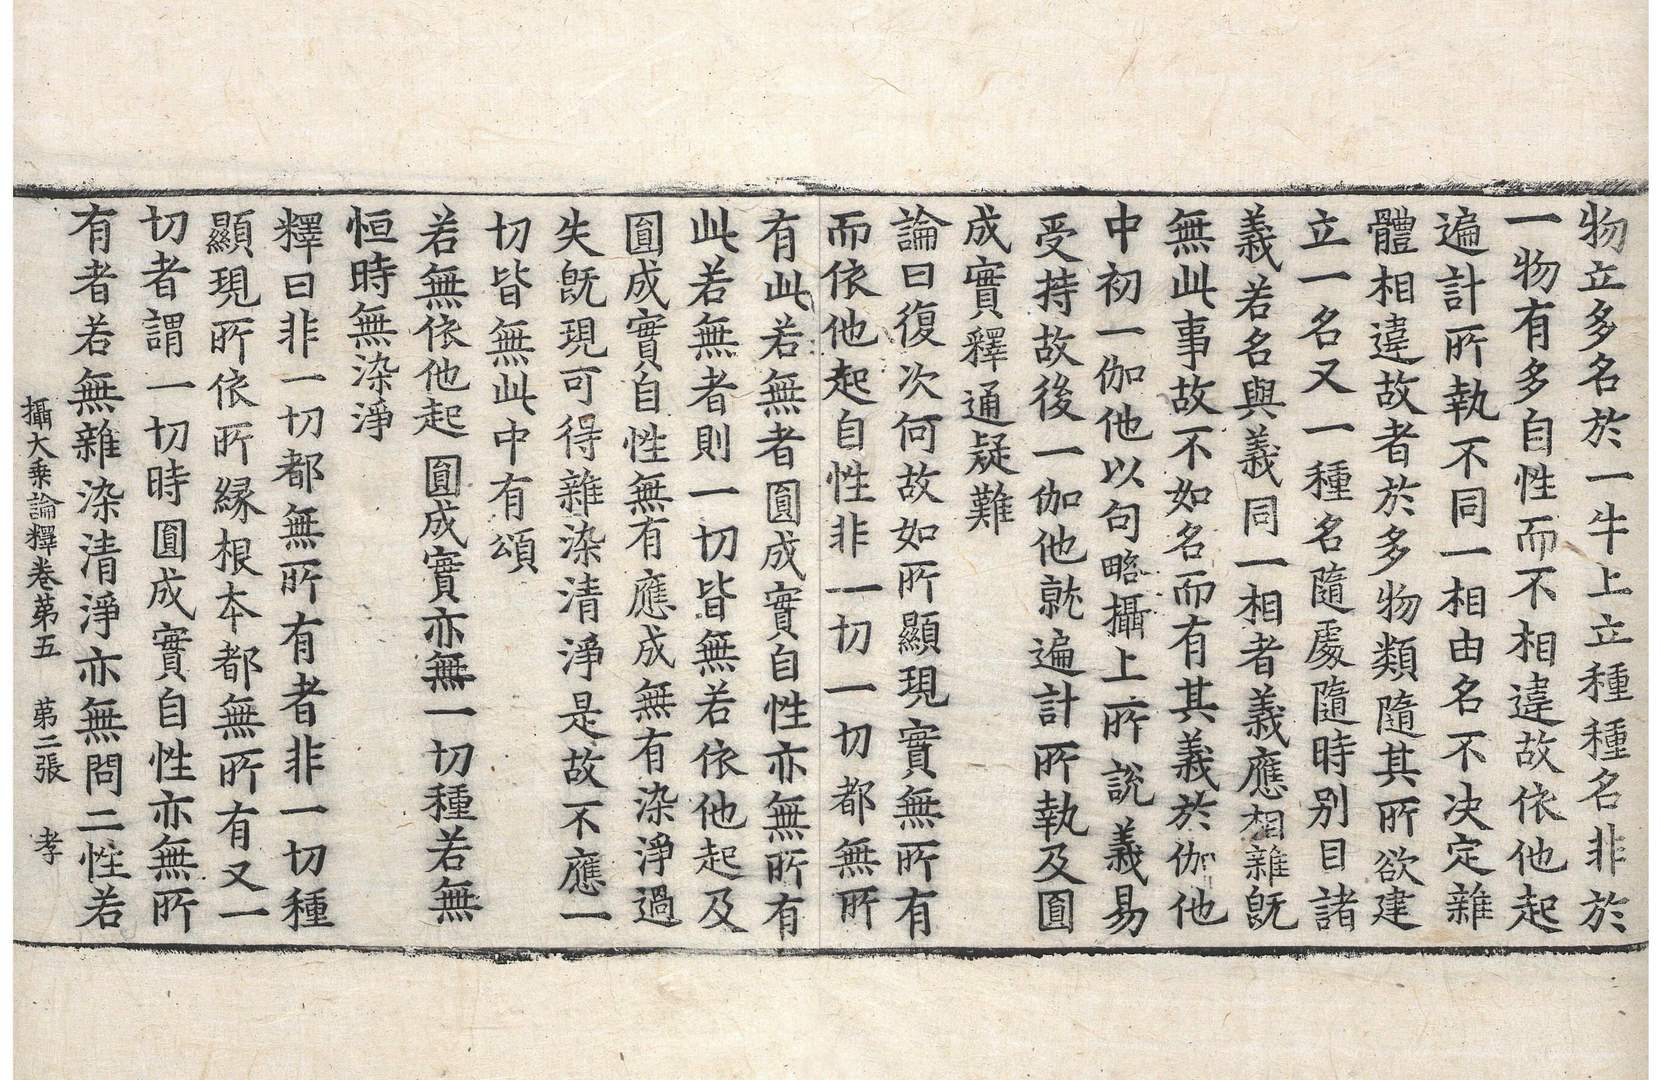 物立多名於一牛上立種種名非於
一物有多自性而不相違故依他起
遍計所執不同一相由名不決定雜
體相違故者於多物類隨其所欲建
立一名又一種名隨處隨時別目諸
義若名與義同一相者義應相雜旣
無此事故不如名而有其義於伽他
中初一伽他以句略攝上所說義易
受持故後一伽他就遍計所執及圓
成實釋通疑難
論曰復次何故如所顯現實無所有
而依他起自性非一切一切都無所
有此若無者圓成實自性亦無所有
此若無者則一切皆無若依他起及
圓成實自性無有應成無有染淨過
失旣現可得雜染清淨是故不應一
切皆無此中有頌
若無依他起 圓成實亦無 一切種若無
恒時無染淨
釋曰非一切都無所有者非一切種
顯現所依所緣根本都無所有又一
切者謂一切時圓成實自性亦無所
有者若無雜染清淨亦無問二性若
攝大乘論釋卷第五 第二張 孝